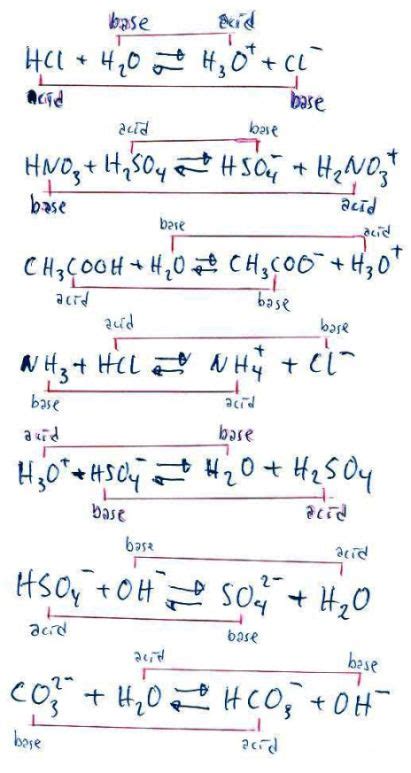 base acid
HCl + H₂O ⇌ H₃O⁺ + Cl⁻
acid base
acid base
HNO₃ + H₂SO₄ ⇌ HSO₄⁻ + H₂NO₃⁺
base acid
base acid
CH₃COOH + H₂O ⇌ CH₃COO⁻ + H₃O⁺
acid base
acid base
NH₃ + HCl ⇌ NH₄⁺ + Cl⁻
base acid
acid base
H₃O⁺ + HSO₄⁻ ⇌ H₂O + H₂SO₄
base acid
base acid
HSO₄⁻ + OH⁻ ⇌ SO₄²⁻ + H₂O
acid base
acid base
CO₃²⁻ + H₂O ⇌ HCO₃⁻ + OH⁻
base acid